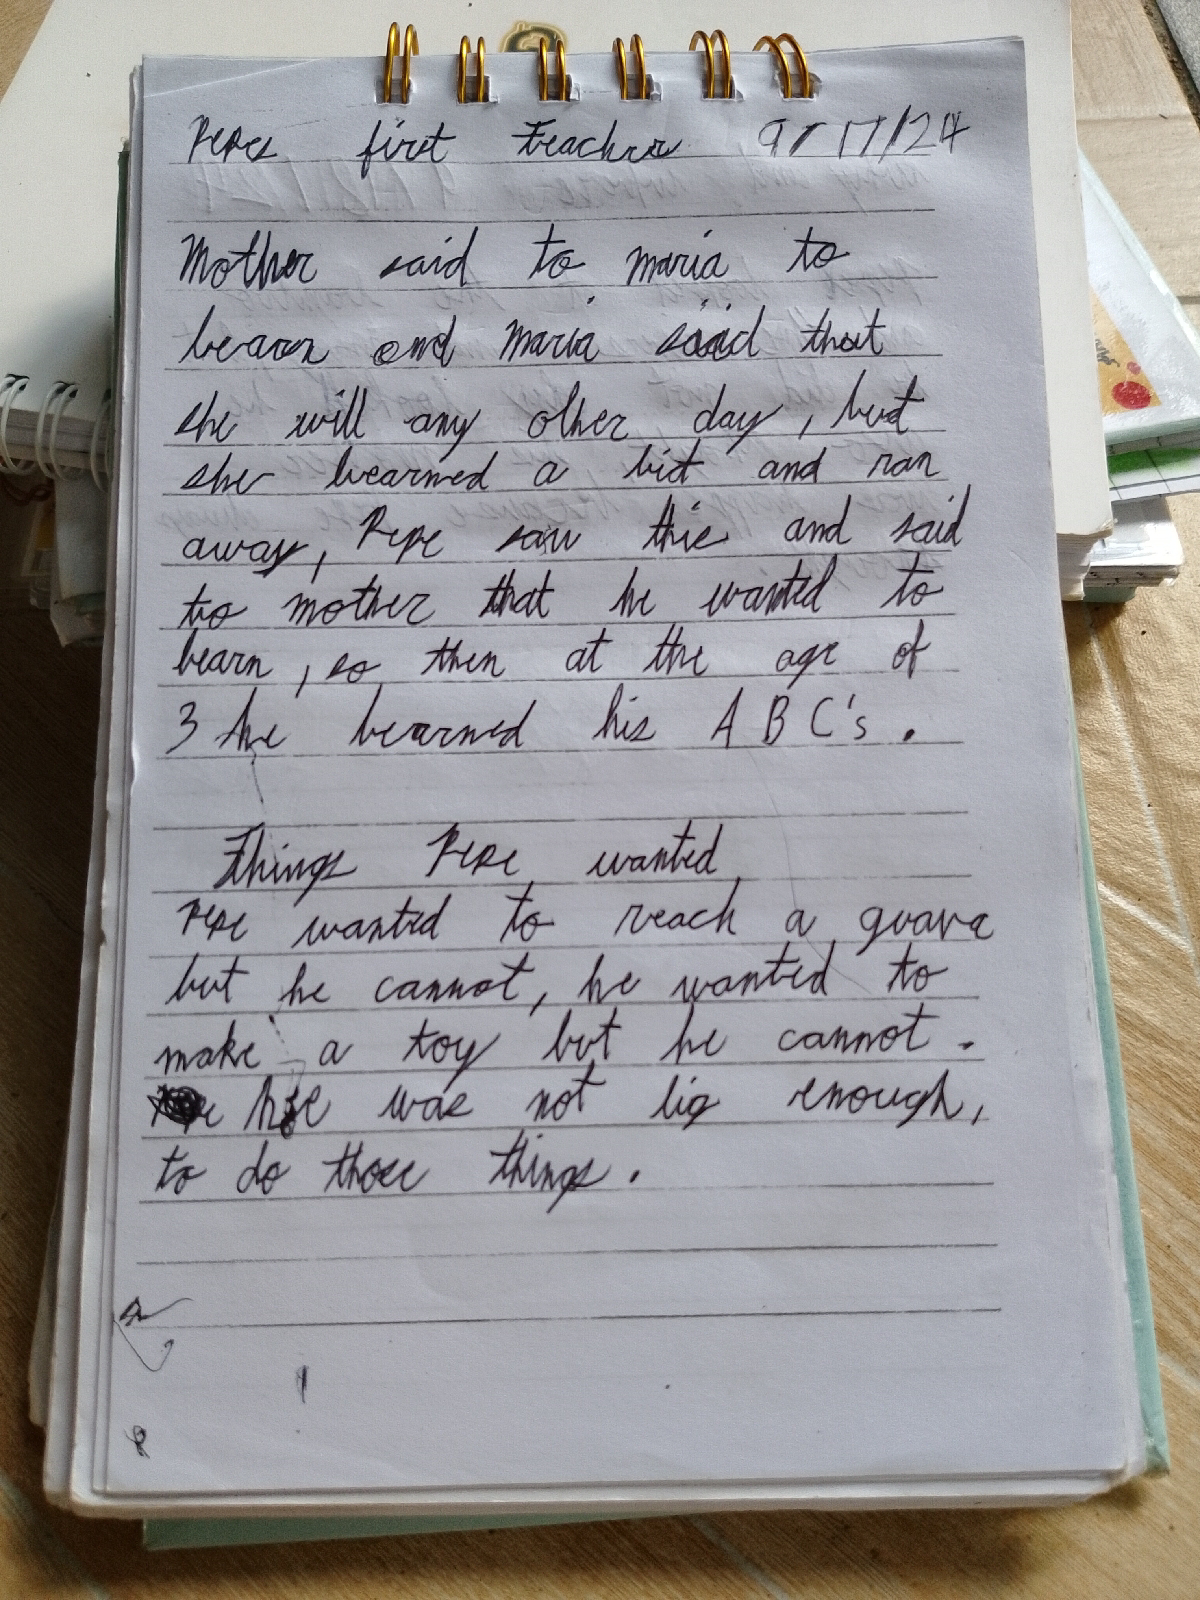 Pepes first teacher 9/17/24
Mother said to maria to
learn and Maria said that
she will any other day, but
she learned a bit and ran
away, Pepe saw this and said
to mother that he wanted to
learn, so then at the age of
3 he learned his A B C's.
Things Pepe wanted
Pepe wanted to reach a guava
but he cannot, he wanted to
make a toy but he cannot.
he was not big enough,
to do those things.